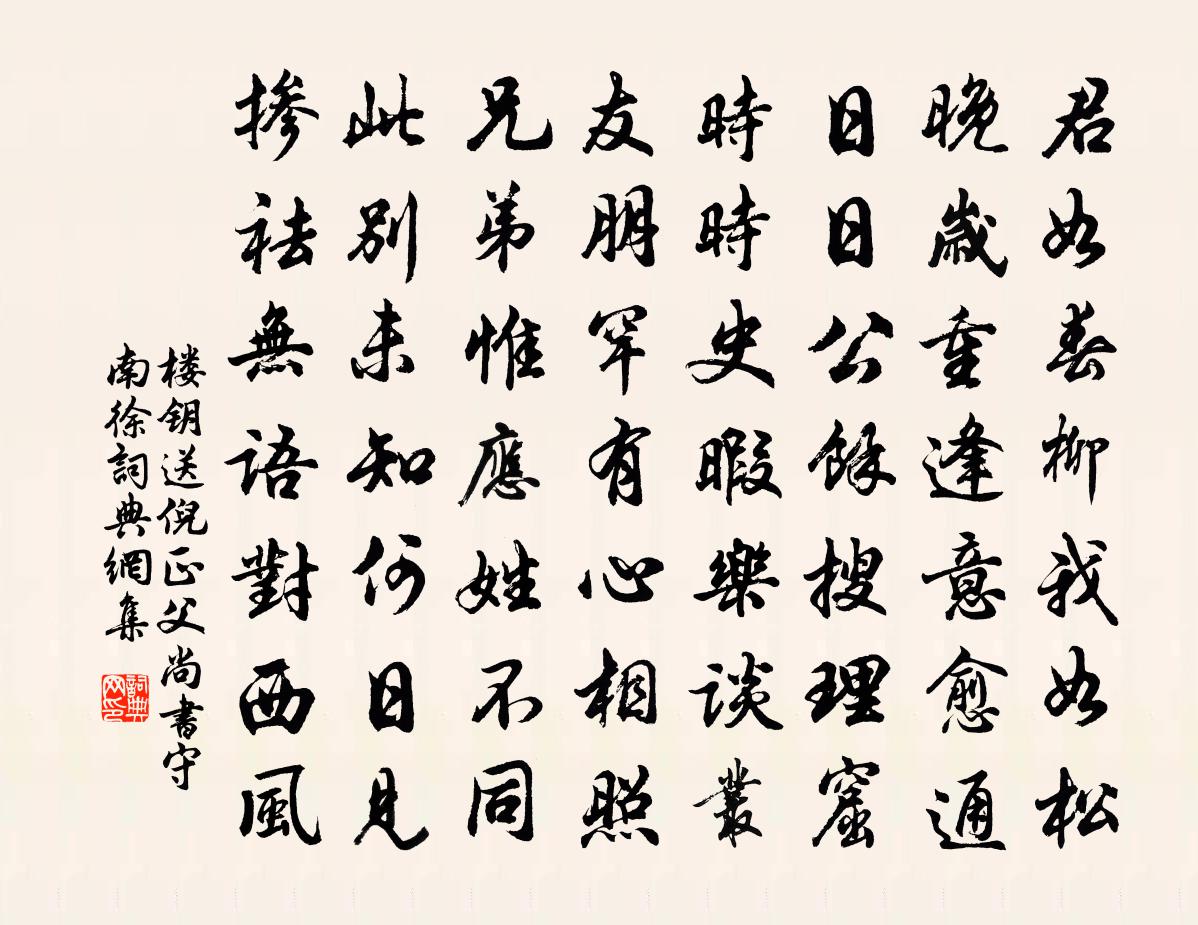 君如春柳我如松
晚歲重逢意愈通
日日公餘搜理窟
時時史暇樂談叢
友朋罕有心相照
兄弟惟應姓不同
此別未知何日見
摻袪無語對西風
楼钥送倪正父尚書守
南徐詞典網集
詞典
网印